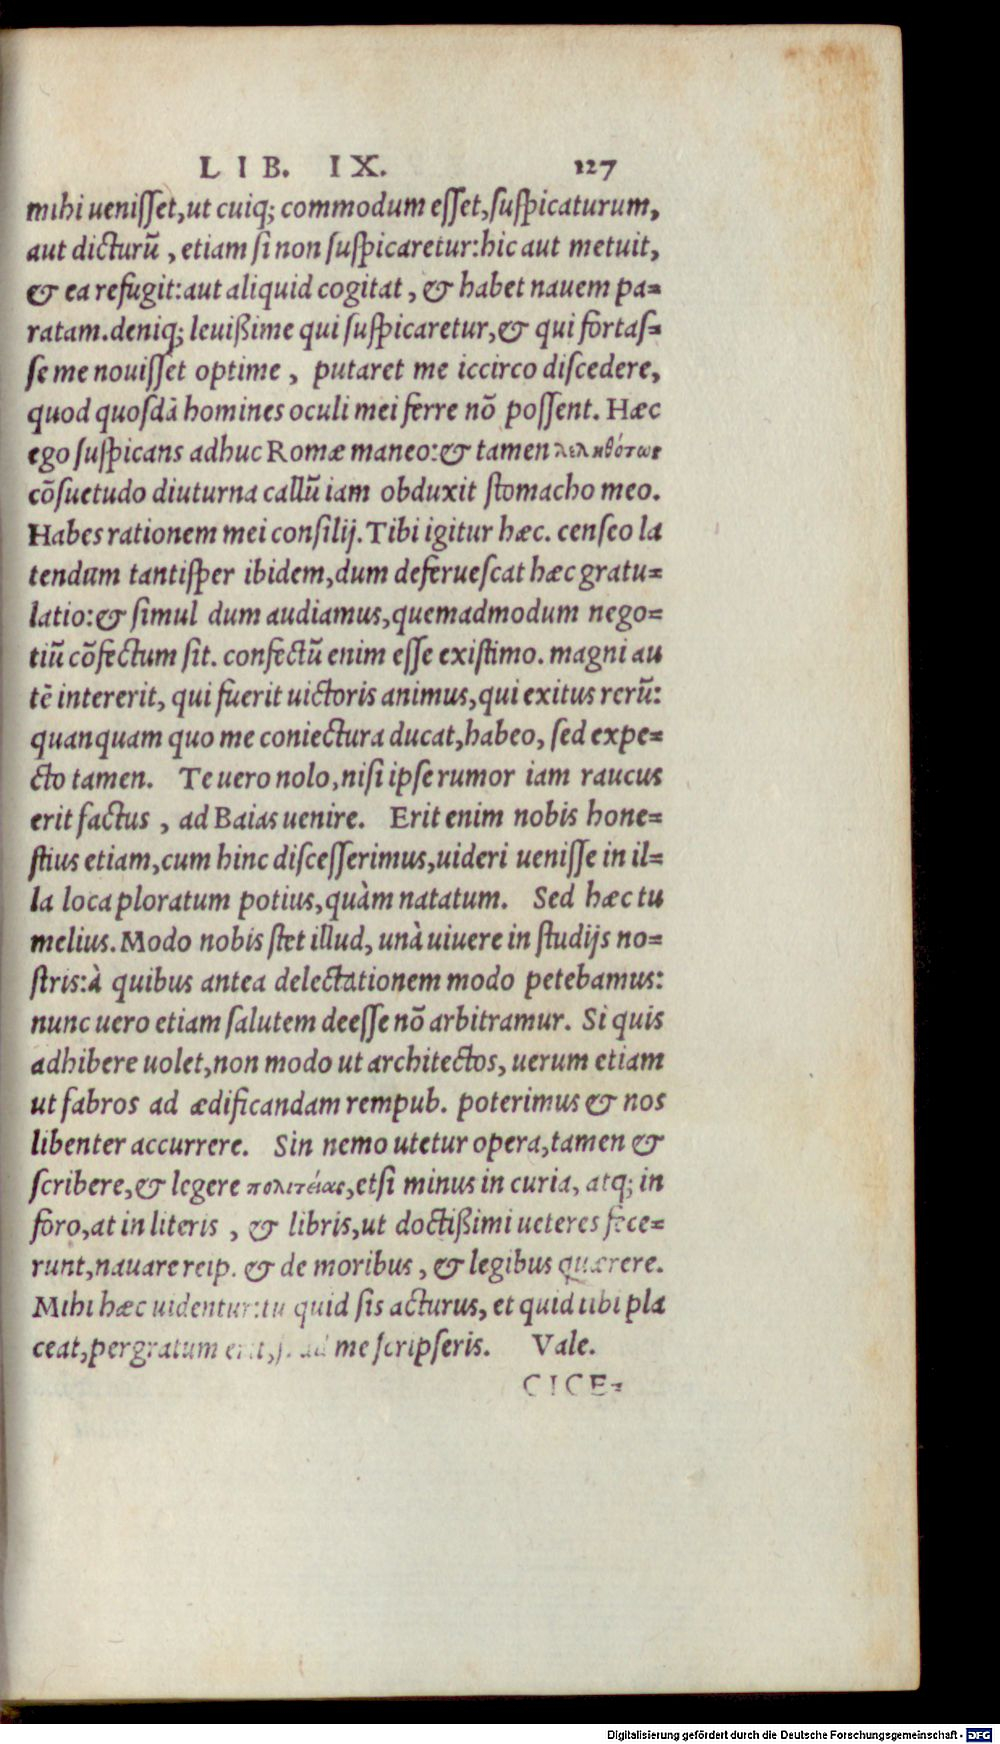 LIB. IX. 127
mihi uenisset,ut cuiq; commodum esset,suspicaturum,
aut dicturũ, etiam si non suspicaretur:hic aut metuit,
& ea refugit:aut aliquid cogitat, & habet nauem pa=
ratam.deniq; leuißime qui suspicaretur,& qui fortas=
se me nouisset optime, putaret me iccirco discedere,
quod quosdã homines oculi mei ferre nõ possent. Hæc
ego suspicans adhuc Romæ maneo:& tamen λεληθότως
cõsuetudo diuturna callũ iam obduxit stomacho meo.
Habes rationem mei consilij. Tibi igitur hæc. censeo la
tendum tantisper ibidem,dum deferuescat hæc gratu=
latio:& simul dum audiamus,quemadmodum nego=
tiũ cõfectum sit. confectũ enim esse existimo. magni au
tẽ intererit, qui fuerit uictoris animus,qui exitus rerũ:
quanquam quo me coniectura ducat,habeo, sed expe=
cto tamen. Te uero nolo,nisi ipse rumor iam raucus
erit factus, ad Baias uenire. Erit enim nobis hone=
stius etiam,cum hinc discesserimus,uideri uenisse in il=
la loca ploratum potius,quàm natatum. Sed hæc tu
melius. Modo nobis stet illud, unà uiuere in studijs no=
stris:à quibus antea delectationem modo petebamus:
nunc uero etiam salutem deesse nõ arbitramur. Si quis
adhibere uolet,non modo ut architectos, uerum etiam
ut fabros ad ædificandam rempub. poterimus & nos
libenter accurrere. Sin nemo utetur opera,tamen &
scribere,& legere πολιτείας,etsi minus in curia, atq; in
foro,at in literis, & libris,ut doctißimi ueteres fece=
runt,nauare reip. & de moribus, & legibus quærere.
Mihi hæc uidentur:tu quid sis acturus, et quid tibi pla
ceat,pergratum erit, ad me scripseris. Vale.
CICE=
Digitalisierung gefördert durch die Deutsche Forschungsgemeinschaft - DFG